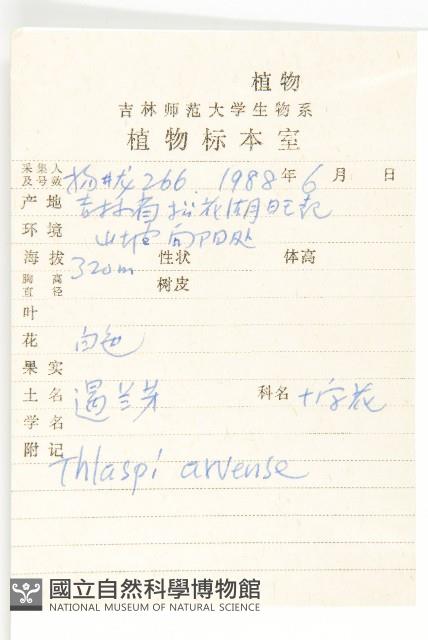 植物
吉林师范大学生物系
植物标本室
采集人及号数 杨 266. 1988年6月 日
产地 吉林省松花湖
环境 山坡向阳处
海拔 320m 性状 体高
胸高直径 树皮
叶
花 白色
果实
土名 遏兰芽 科名 十字花
学名
附记 Thlaspi arvense
國立自然科學博物館
NATIONAL MUSEUM OF NATURAL SCIENCE